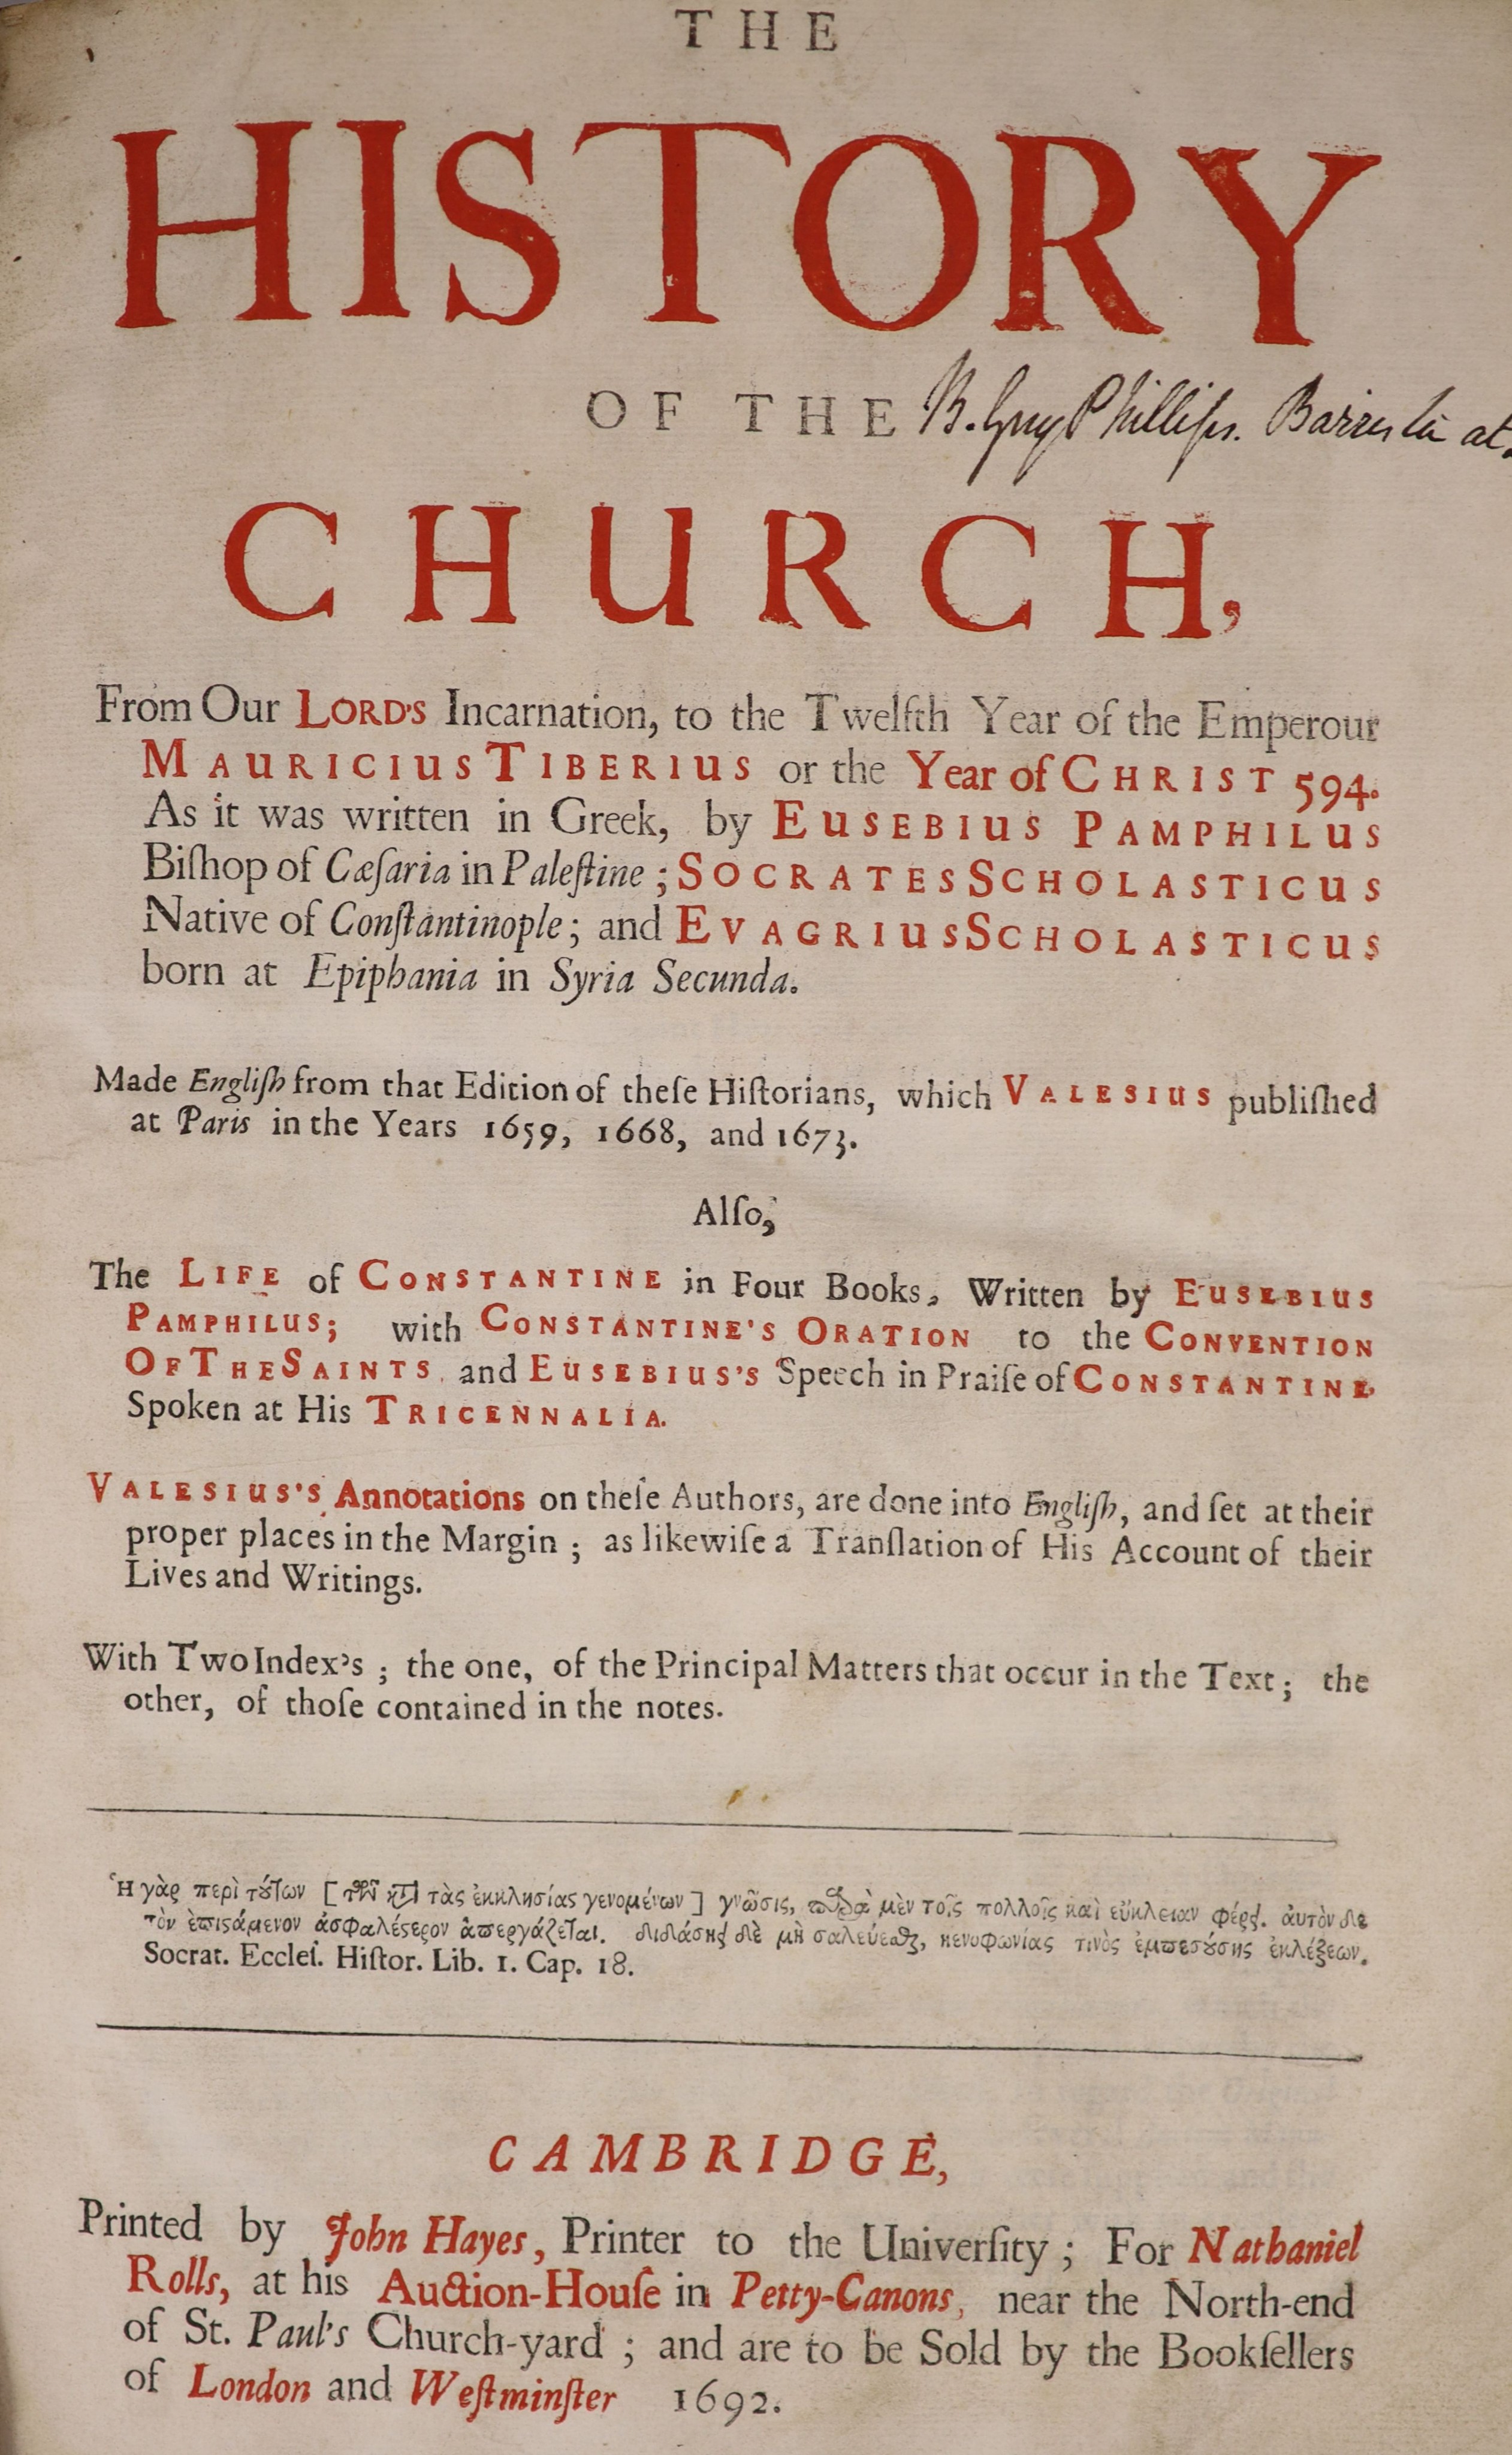 THE
HISTORY
OF THE
B. Guy Phillips. Barrister at.
CHURCH,
From Our LORD'S Incarnation, to the Twelfth Year of the Emperour
MAURICIUS TIBERIUS or the Year of CHRIST 594.
As it was written in Greek, by EUSEBIUS PAMPHILUS
Biſhop of Cæſaria in Paleſtine; SOCRATES SCHOLASTICUS
Native of Conſtantinople; and EVAGRIUS SCHOLASTICUS
born at Epiphania in Syria Secunda.
Made Engliſh from that Edition of theſe Hiſtorians, which VALESIUS publiſhed
at Paris in the Years 1659, 1668, and 1673.
Alſo,
The LIFE of CONSTANTINE in Four Books, Written by EUSEBIUS
PAMPHILUS; with CONSTANTINE'S ORATION to the CONVENTION
OF THE SAINTS, and EUSEBIUS'S Speech in Praiſe of CONSTANTINE,
Spoken at His TRICENNALIA.
VALESIUS'S Annotations on theſe Authors, are done into Engliſh, and ſet at their
proper places in the Margin; as likewiſe a Tranſlation of His Account of their
Lives and Writings.
With Two Index's; the one, of the Principal Matters that occur in the Text; the
other, of thoſe contained in the notes.
Ἡ γὰρ περὶ τούτων [ τῶν κατὰ τὰς ἐκκλησίας γενομένων ] γνῶσις, μὲν τοῖς πολλοῖς καὶ εὔκλειαν φέρει. αὐτὸν δὲ
τὸν ἐπιστάμενον ἀσφαλέστερον ἀπεργάζεται. διδάσκει δὲ μὴ σαλεύεσθαι, κενοφωνίας τινὸς ἐμπεσούσης ἐκλέξεων.
Socrat. Eccleſ. Hiſtor. Lib. 1. Cap. 18.
CAMBRIDGE,
Printed by John Hayes, Printer to the Univerſity; For Nathaniel
Rolls, at his Auction-Houſe in Petty-Canons, near the North-end
of St. Paul's Church-yard; and are to be Sold by the Bookſellers
of London and Weſtminſter 1692.